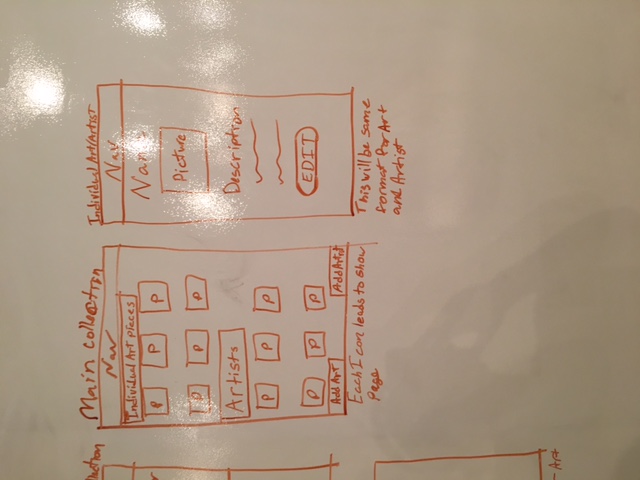 Main collection
Nav
Individual Art pieces
P P P
P P P
Artists
P P P
P P P
Add Art Add Artist
Each Icon leads to show
page
Individual Art/Artist
Nav
Name
Picture
Description
EDIT
This will be same
format for Art
and Artist
Art